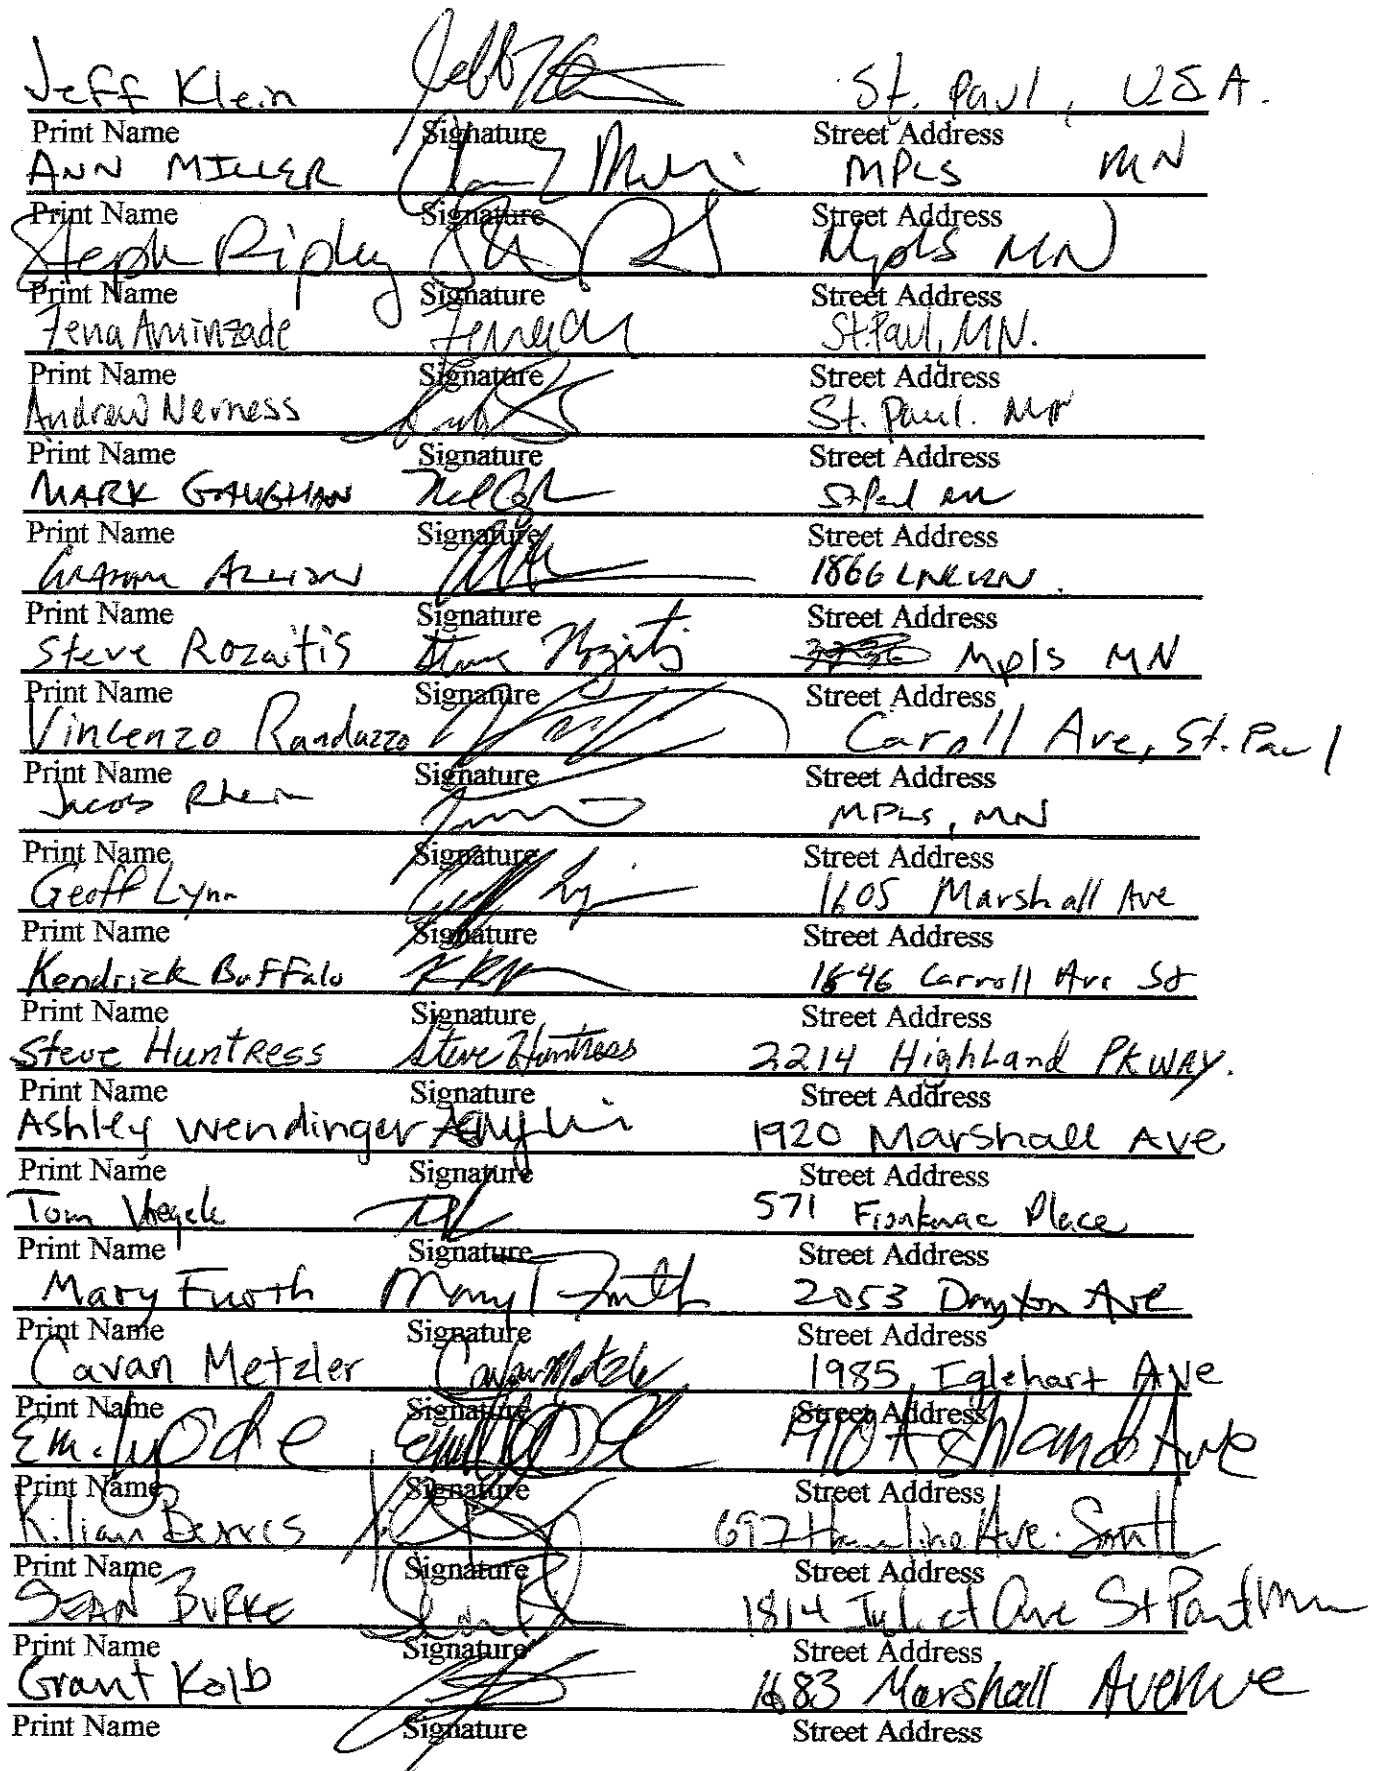 Jeff Klein St. Paul, USA.
Print Name Signature Street Address
ANN MILLER MPLS MN
Print Name Signature Street Address
Steph Ripley Mpls MN
Print Name Signature Street Address
Zena Aminzade St. Paul, MN.
Print Name Signature Street Address
Andrew Nerness St. Paul. MN
Print Name Signature Street Address
MARK GAUGHAN St Paul MN
Print Name Signature Street Address
GRAHAM ALLISON 1866 LINCOLN.
Print Name Signature Street Address
Steve Rozaitis Steve Rozaitis Mpls MN
Print Name Signature Street Address
Vincenzo Randazzo Caroll Ave, St. Paul
Print Name Signature Street Address
Jacob Rhein MPLS, MN
Print Name Signature Street Address
Geoff Lynn 1605 Marshall Ave
Print Name Signature Street Address
Kendrick Buffalo 1846 Carroll Ave St
Print Name Signature Street Address
Steve Huntress Steve Huntress 2214 Highland PKWAY.
Print Name Signature Street Address
Ashley Wendinger 1920 Marshall Ave
Print Name Signature Street Address
Tom 571 Frontenac Place
Print Name Signature Street Address
Mary Furth 2053 Dayton Ave
Print Name Signature Street Address
Cavan Metzler Cavan Metzler 1985 Iglehart Ave
Print Name Signature Street Address
Emily Ode Ashland Ave
Print Name Signature Street Address
Kilian 697 Hamline Ave. South
Print Name Signature Street Address
SEAN BURKE 1814 Juliet Ave St Paul Mn
Print Name Signature Street Address
Grant Kolb 1683 Marshall Avenue
Print Name Signature Street Address